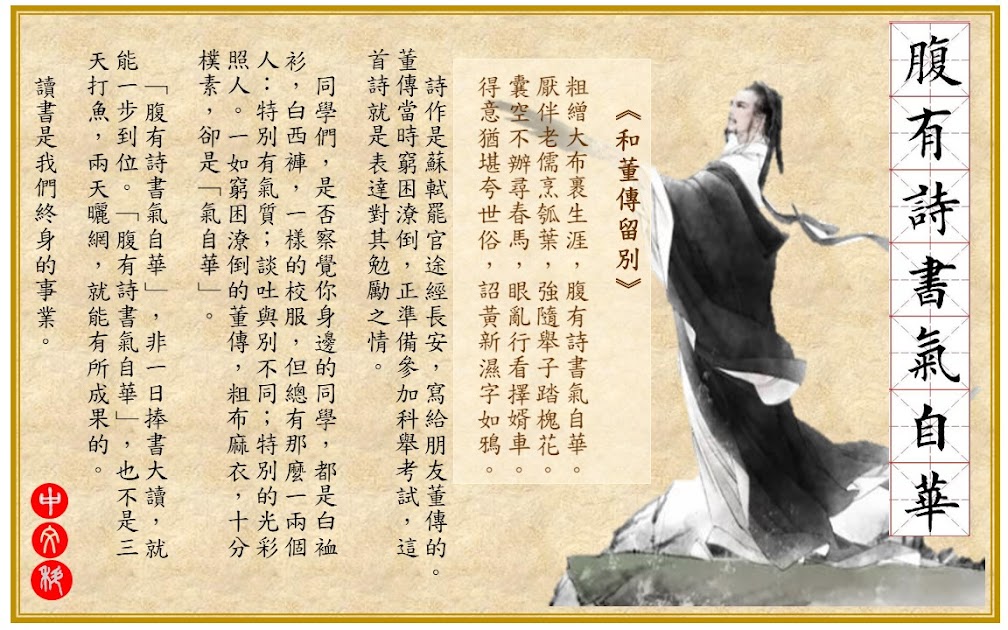 腹有詩書氣自華
《和董傳留別》
粗繒大布裹生涯，腹有詩書氣自華。
厭伴老儒烹瓠葉，強隨舉子踏槐花。
囊空不辦尋春馬，眼亂行看擇婿車。
得意猶堪夸世俗，詔黃新濕字如鴉。
詩作是蘇軾罷官途經長安，寫給朋友董傳的。
董傳當時窮困潦倒，正準備參加科舉考試，這
首詩就是表達對其勉勵之情。
同學們，是否察覺你身邊的同學，都是白裇
衫，白西褲，一樣的校服，但總有那麼一兩個
人：特別有氣質；談吐與別不同；特別的光彩
照人。一如窮困潦倒的董傳，粗布麻衣，十分
樸素，卻是「氣自華」。
「腹有詩書氣自華」，非一日捧書大讀，就
能一步到位。「腹有詩書氣自華」，也不是三
天打魚，兩天曬網，就能有所成果的。
讀書是我們終身的事業。
中文科